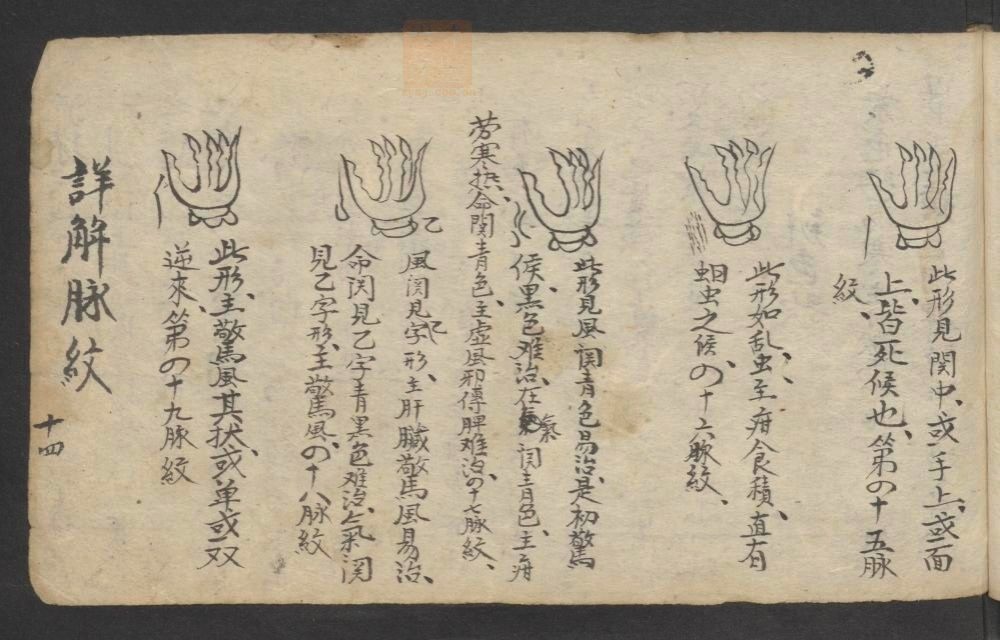 此形見関中、或手上、或面
上、皆死候也、第四十五脉
紋、
此形如乱虫、至疳食積、直有
蛔虫之候、四十六脉紋、
此形見風関青色易治、是初驚
候、黑色难治、在氣関青色、主疳
劳寒热、命関青色、主虚風邪傳脾难治、四十七脉紋、
風関見乙字形、主肝臟驚風易治、
命関見乙字青黑色难治、氣関
見乙字形、主驚風、四十八脉紋
此形、主驚風其状、或单或双
逆來、第四十九脉紋
詳解脉紋
十四